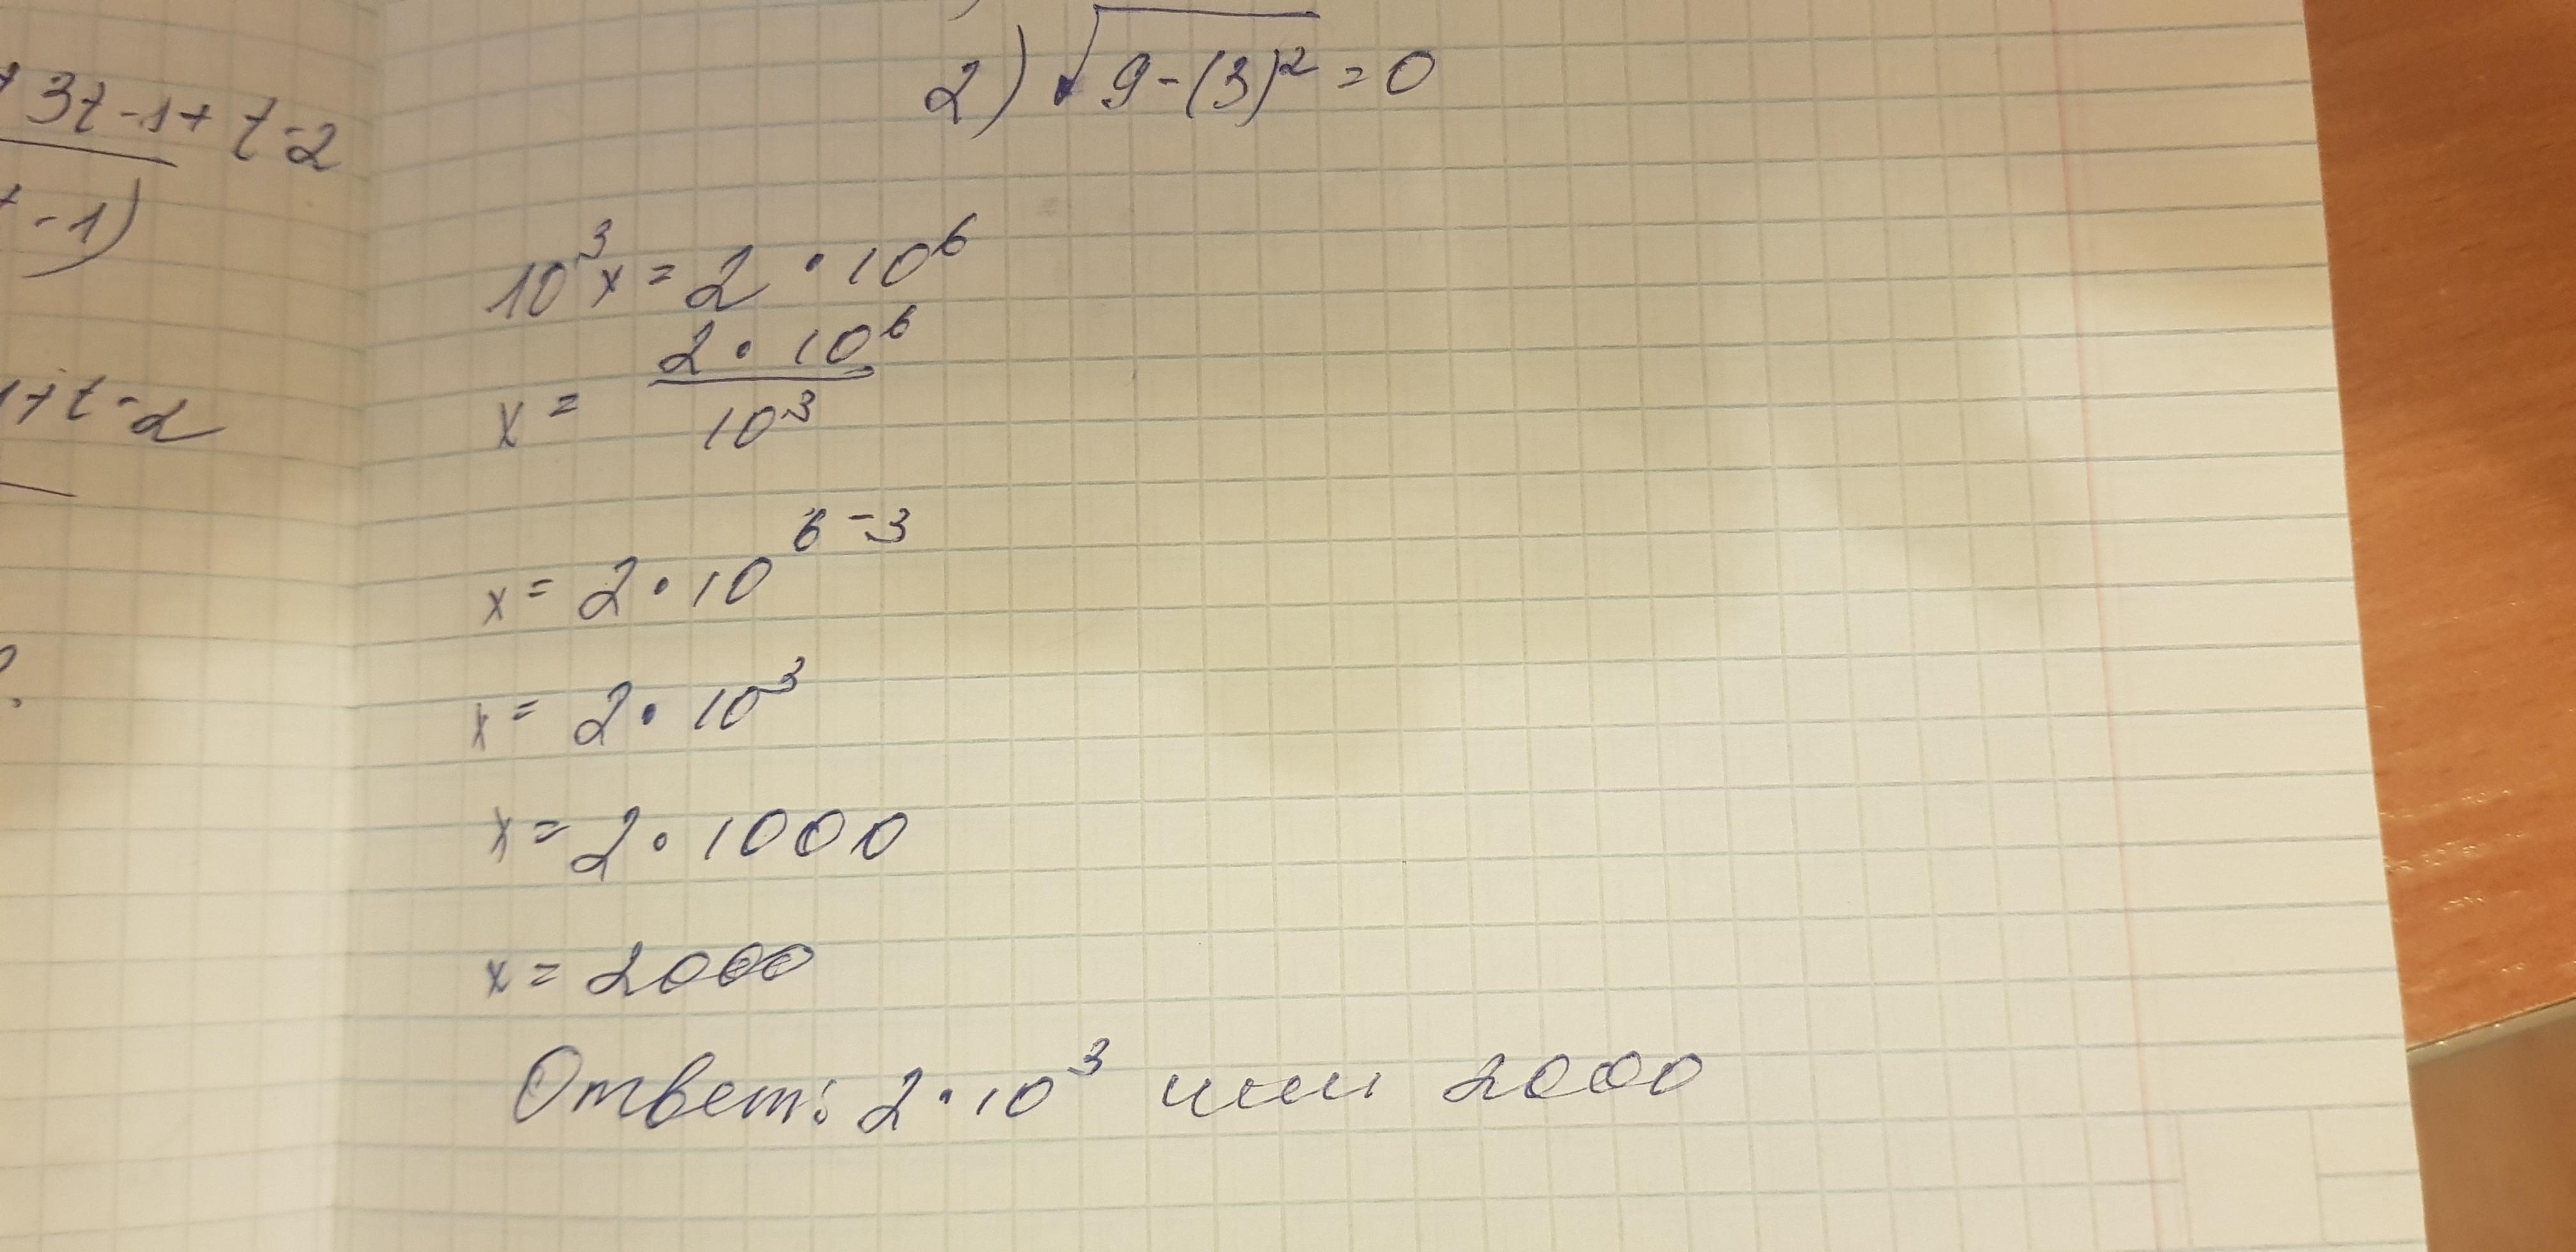 3t-1+t-2
-1)
+t-2
2) √9-(3)² = 0
10³x = 2 · 10⁶
x = 2 · 10⁶ / 10³
x = 2 · 10⁶⁻³
x = 2 · 10³
x = 2 · 1000
x = 2000
Ответ: 2 · 10³ или 2000